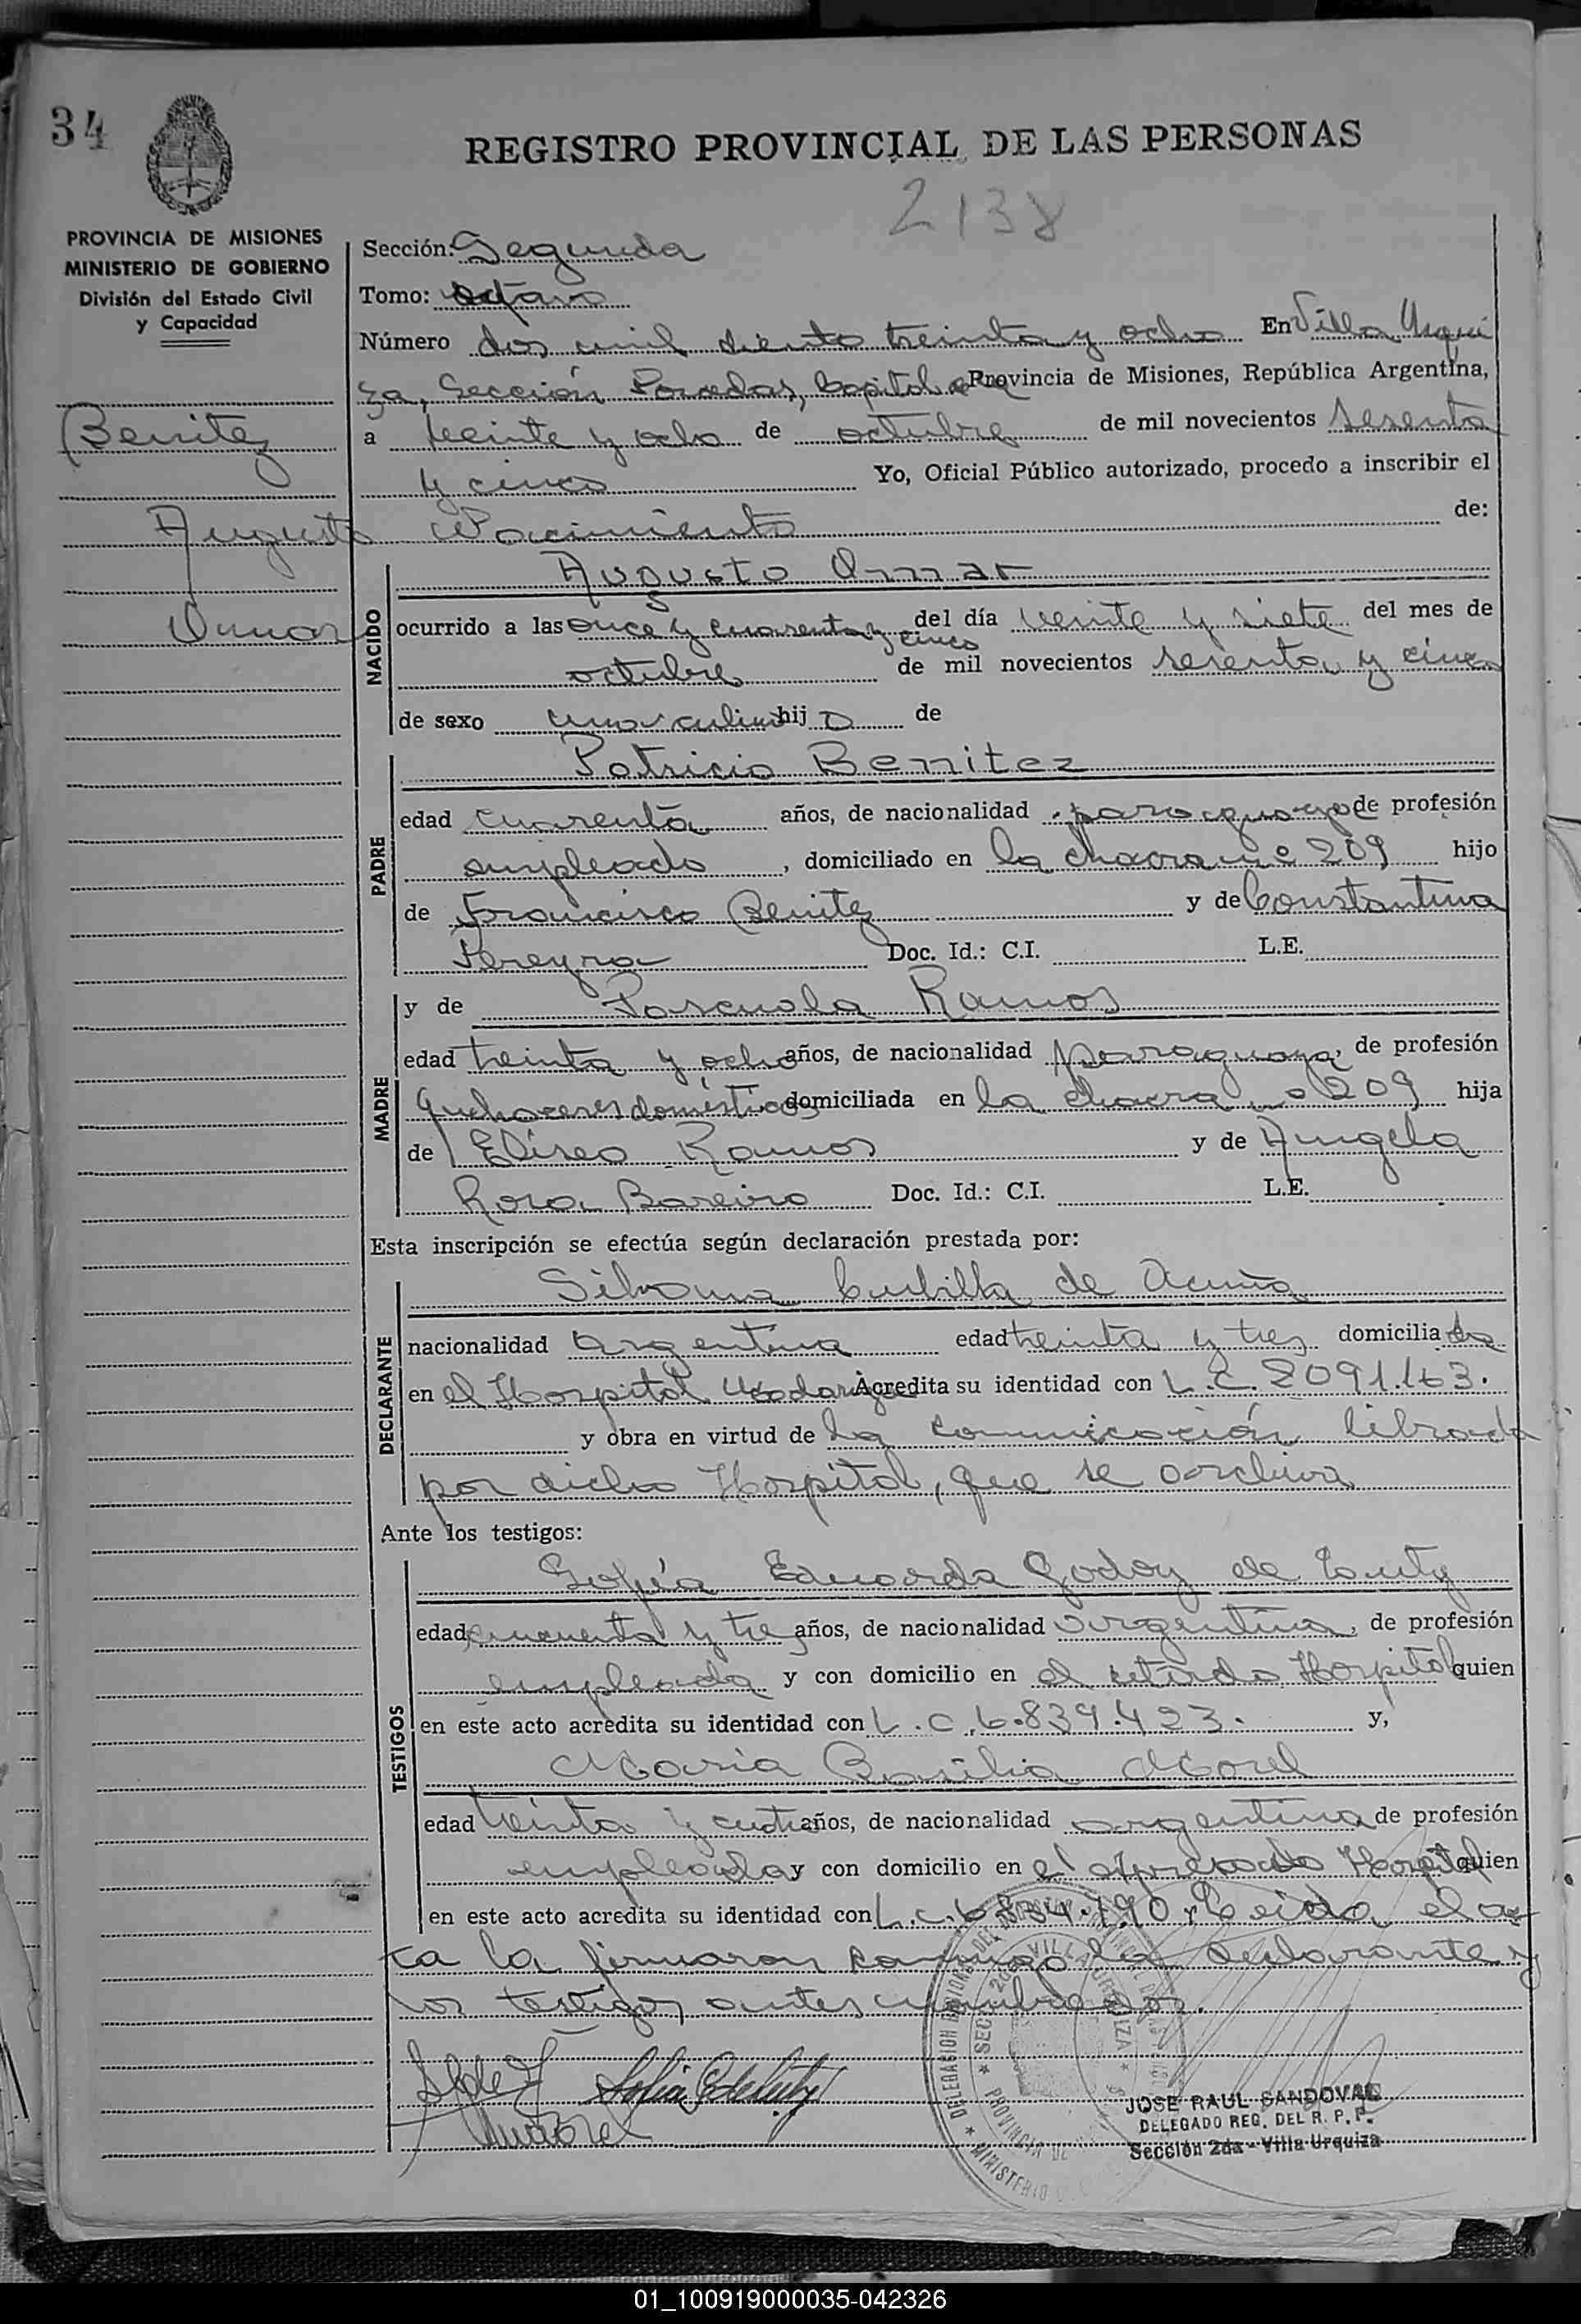 34
REGISTRO PROVINCIAL DE LAS PERSONAS
2138
PROVINCIA DE MISIONES
MINISTERIO DE GOBIERNO
División del Estado Civil
y Capacidad
Benitez
Augusto
Omar
Sección: Segunda
Tomo: octavo
Número dos mil ciento treinta y ocho En Villa Urqui
za, Sección Posadas, Capital Provincia de Misiones, República Argentina,
a veinte y ocho de octubre de mil novecientos sesenta
y cinco Yo, Oficial Público autorizado, procedo a inscribir el
Nacimiento de:
NACIDO
Augusto Omar
ocurrido a las once y cuarenta y cinco del día veinte y siete del mes de
octubre de mil novecientos sesenta y cinco
de sexo masculino hijo de
PADRE
Patricio Benitez
edad cuarenta años, de nacionalidad paraguayo de profesión
empleado, domiciliado en la chacra no 209 hijo
de Francisco Benitez y de Constantina
Pereyra Doc. Id.: C.I. L.E.
MADRE
y de Pascuala Ramos
edad treinta y ocho años, de nacionalidad paraguaya, de profesión
quehaceres domésticos domiciliada en la chacra no 209 hija
de Eliseo Ramos y de Angela
Rosa Bareiro Doc. Id.: C.I. L.E.
Esta inscripción se efectúa según declaración prestada por:
DECLARANTE
Silvana Cubilla de Acuña
nacionalidad argentina edad treinta y tres domiciliada
en el Hospital Madariaga Acredita su identidad con L.C. 2091.163.
y obra en virtud de la comunicación librada
por dicho Hospital, que se archiva
Ante los testigos:
TESTIGOS
Sofía Eduarda Godoy de
edad cincuenta y tres años, de nacionalidad argentina, de profesión
empleada y con domicilio en el citado Hospital quien
en este acto acredita su identidad con L.C. 6.839.423. y,
María Basilia Morel
edad treinta y cuatro años, de nacionalidad argentina de profesión
empleada y con domicilio en el expresado Hospital quien
en este acto acredita su identidad con L.C. 6.834.790 Leida el ac
ta la firmaron conmigo la declarante y
los testigos antes nombrados.
JOSE RAUL SANDOVAL
DELEGADO REG. DEL R. P. P.
Sección 2da - Villa Urquiza
01_100919000035-042326